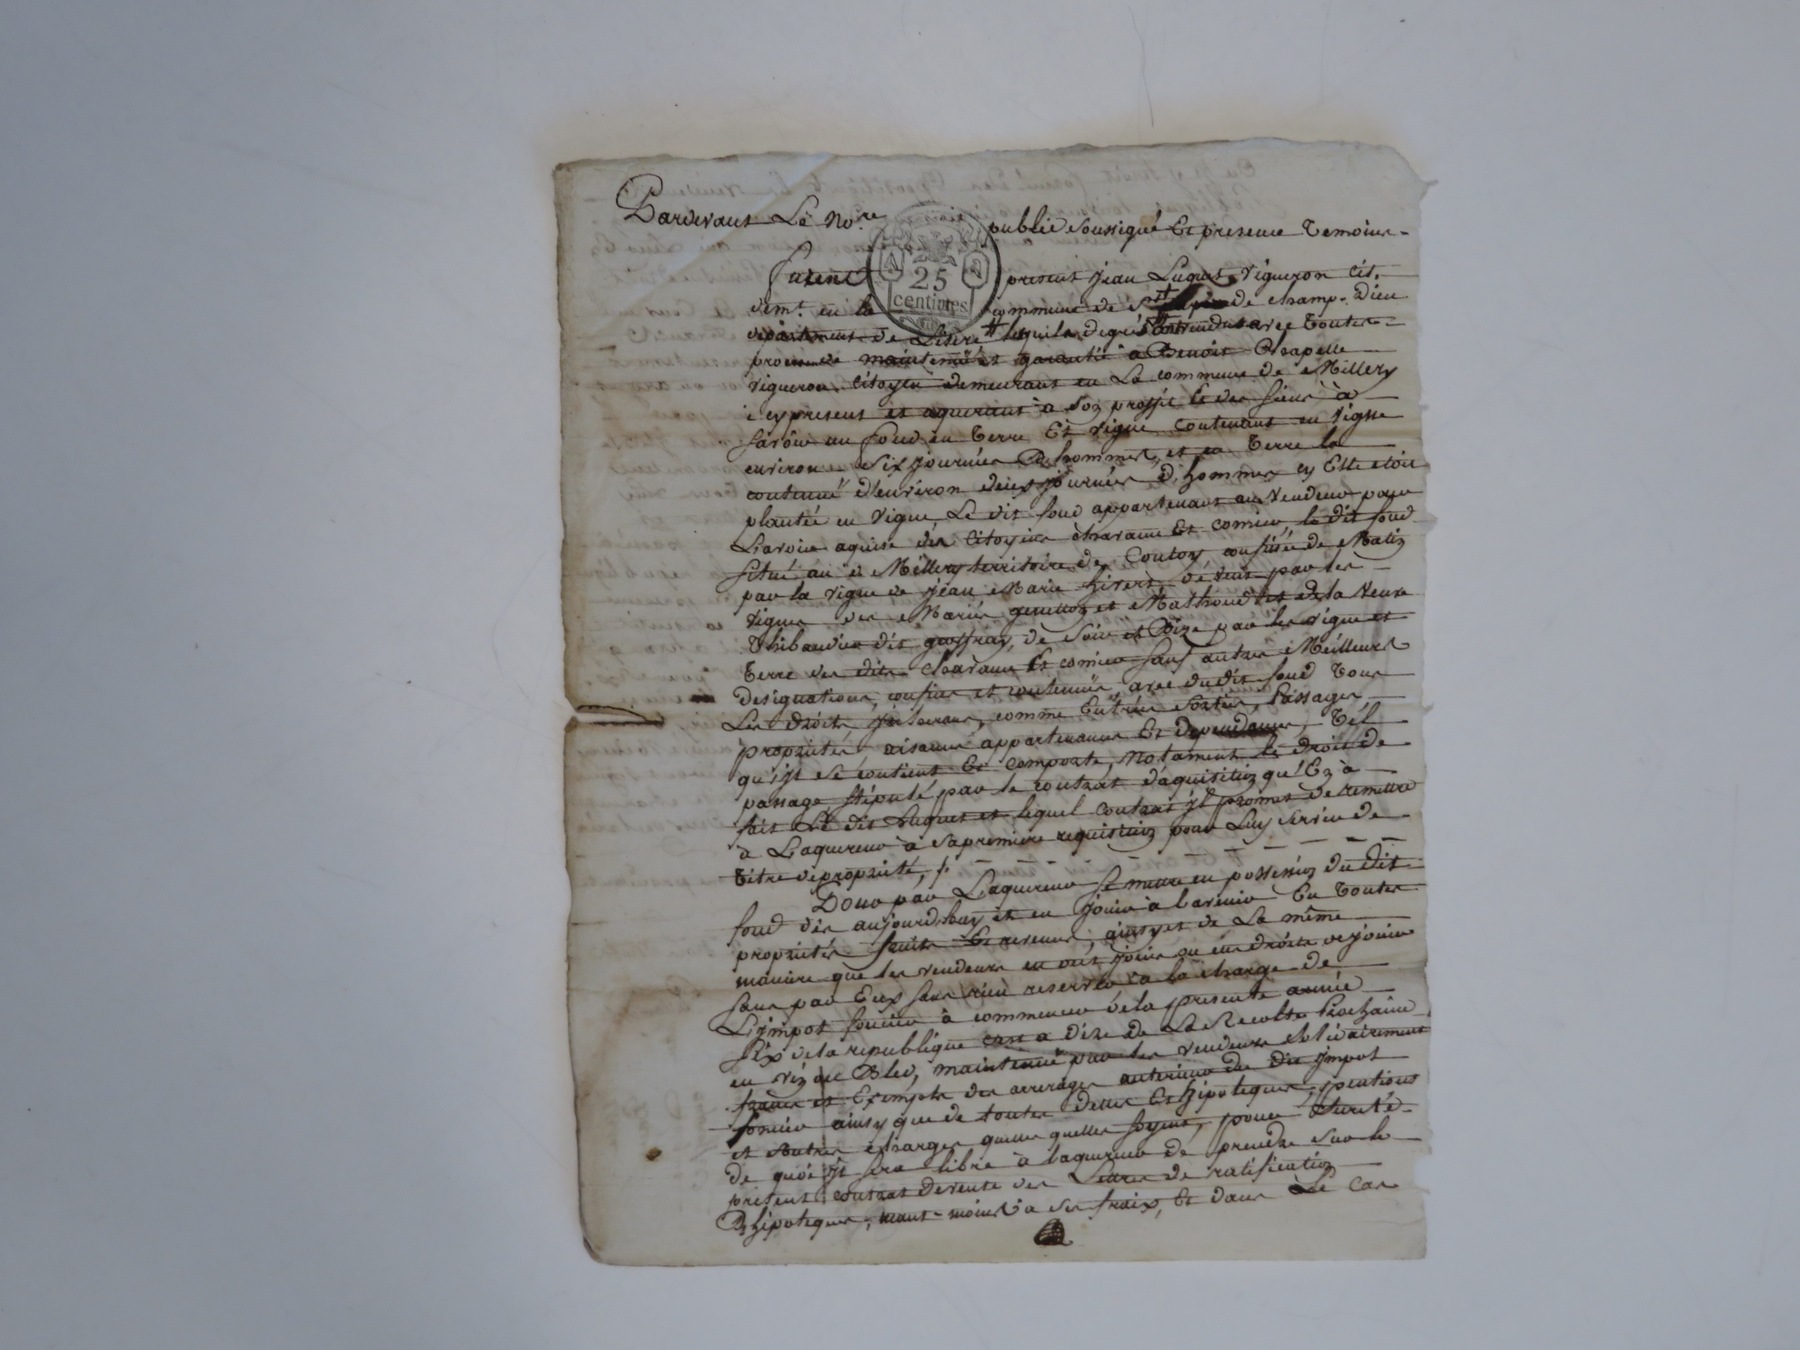 Pardevant Le No.re public soussigné Et presence Temoins
furent present Jean Luquet vigneron cit.
dem.t en la commune de St de champ-Dieu
departement de L'isere
25
centimes
promesse de maintenüe et garantie à Benoit Chapelle
vigneron citoyen demeurant en La commune de Millery
icy present et aquerant à son proffit et des siens à
savoir un fond en Terre Et vigne contenant en vigne
environ six journées D'hommes, et en Terre la
contenuë d'environ deux journées d'hommes sy Elle etoit
plantée en vigne, Le dit fond appartenant au vendeur pour
L'avoir aquise des Citoyens charavne Et comier, le dit fond
situé au dt Millery territoire de Coutoy confiné de Matin
par la vigne de Jean Marie hivert, de vent par les
vignes des Mariés et Mathoud et de la Veuve
Thibaudier dit geoffray, de Soir et Bize par les vigne et
Terre des dits charavne Et comier sauf autres Meilleures
designations, confins et contenuës, avec du dit fond Tous
Les droits jntoeraux, comme Entrées Sorties, Passages
proprietés aisances appartenances Et dependances, Tél
qu'jl se contient Et comporte, Notament le droit de
passage stipulé par le contrat d'aquisition qu'En à
fait Le dit Luquet et lequel contrat jl promet de remettre
à L'aquereur à sa premiere requisition pour Luy servir de
titre de proprieté,
Donc par L'aquereur se mettre en possession du dit
fond dès aujourd'huy et en jouir à l'avenir En Toutes
proprietés fruits Et revenus, ainsy et de La même
maniere que les vendeurs en ont jouis ou eu droits de jouir
sans par Eux sans rien reserver à la charge de
L'jmpot foncier à commencer de la presente année
Six de la republique cest a dire de La Recolte Prochaine
en vin et Bled, maintenuë par les vendeurs solidairement
francs et Exempts des arrerages anterieurs du dit jmpot
foncier ainsy que de toutes dettes Et hipoteques, pentions
et Autres charges quelles quelles soyent, pour Sureté
de quoi jl sera libre à l'aquereur de prendre sur le
present contrat de vente des Lettres de ratification
D'hipoteques, neant-moins à ses fraix, Et dans Le cas